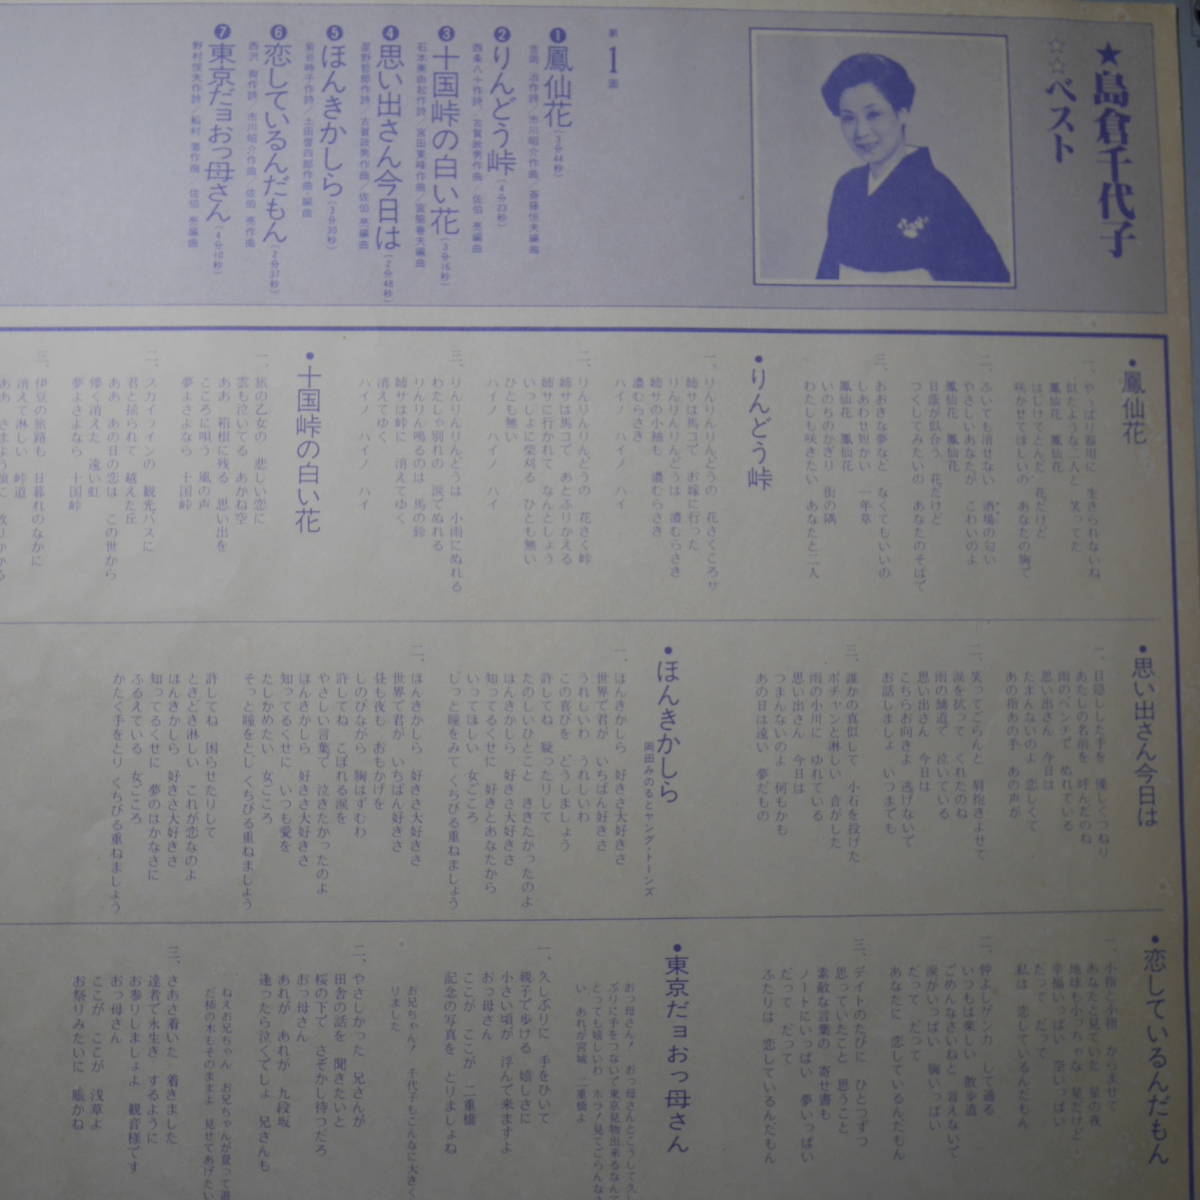 ★島倉千代子
☆☆ベスト
第1面
❶鳳仙花(3分44秒)
❷りんどう峠(4分23秒)
西条八十作詩／古賀政男作曲／佐伯 亮編曲
❸十国峠の白い花(3分16秒)
石本美由起作詩／宮田東峰作曲
❹思い出さん今日は(2分48秒)
星野哲郎作詩／古賀政男作曲／佐伯 亮編曲
❺ほんきかしら(3分20秒)
岩谷時子作詩／土田啓四郎作曲・編曲
❻恋しているんだもん(2分37秒)
西沢 爽作詩／市川昭介作曲／佐伯 亮作曲
❼東京だョおっ母さん(4分10秒)
野村俊夫作詩／船村 徹作曲／佐伯 亮編曲
•鳳仙花
一、やっぱり器用に 生きられないね
似たような二人と 笑ってた
鳳仙花 鳳仙花
はじけてとんだ 花だけど
咲かせてほしいの あなたの胸で
二、ふいても消せない 酒場の匂い
やさしいあなたが こわいのよ
鳳仙花 鳳仙花
日蔭が似合う 花だけど
つくしてみたいの あなたのそばで
三、おおきな夢など なくてもいいの
しあわせ短かい 一年草
鳳仙花 鳳仙花
いのちのかぎり 街の隅
わたしも咲きたい あなたと二人
•りんどう峠
一、りんりんりんどうの 花さくころサ
姉サは馬コで お嫁に行った
りんりんりんどうは 濃むらさき
姉サの小袖も 濃むらさき
濃むらさき
ハイノ ハイノ ハイ
二、りんりんりんどうの 花さく峠
姉サは馬コで あとふりかえる
姉サに行かれて なんとしょう
いっしょに栗刈る ひとも無い
ひとも無い
ハイノ ハイノ ハイ
三、りんりんりんどうは 小雨にぬれる
わたしゃ別れの 涙でぬれる
りんりん鳴るのは 馬の鈴
姉サは峠に 消えてゆく
消えてゆく
ハイノ ハイノ ハイ
•十国峠の白い花
一、旅の乙女の 悲しい恋に
雲も泣いてる あかね空
ああ 箱根に残る 思い出を
こころに唄う 風の声
夢よさよなら 十国峠
二、スカイラインの 観光バスに
君と揺られて 越えた丘
ああ あの日の恋は この世から
儚く消えた 遠い虹
夢よさよなら 十国峠
三、伊豆の旅路も 日暮れのなかに
消えて淋しい 峠道
•思い出さん今日は
一、目隠しした手を 優しくつねり
あたしの名前を 呼んだのね
雨のベンチで ぬれている
思い出さん 今日は
たまんないのよ 恋しくて
あの指あの手 あの声が
二、笑ってごらんと 肩抱きよせて
涙を拭って くれたのね
雨の舗道で 泣いている
思い出さん 今日は
こちらお向きよ 逃げないで
お話しましょ いつまでも
三、誰かの真似して 小石を投げた
ポチャンと淋しい 音がした
雨の小川に ゆれている
思い出さん 今日は
つまんないのよ 何もかも
あの日は遠い 夢だもの
•ほんきかしら
岡田みのるとヤング・トーンズ
一、ほんきかしら 好きさ大好きさ
世界で君が いちばん好きさ
うれしいわ うれしいわ
この喜びを どうしましょう
許してね 疑ったりして
たのしいひとこと ききたかったのよ
ほんきかしら 好きさ大好きさ
知ってるくせに 好きとあなたから
いってほしい 女ごころ
じっと瞳をみて くちびる重ねましょう
二、ほんきかしら 好きさ大好きさ
世界で君が いちばん好きさ
昼も夜も おもかげを
しのびながら 胸はずむわ
許してね こぼれる涙を
やさしい言葉で 泣きたかったのよ
ほんきかしら 好きさ大好きさ
知ってるくせに いつも愛を
たしかめたい 女ごころ
そっと瞳をとじ くちびる重ねましょう
許してね 困らせたりして
ときどき淋しい これが恋なのよ
ほんきかしら 好きさ大好きさ
知ってるくせに 夢のはかなさに
ふるえている 女ごころ
かたく手をとり くちびる重ねましょう
•恋しているんだもん
一、小指と小指 からませて
あなたと見ていた 星の夜
地球も小っちゃな 星だけど
幸福いっぱい 奈いっぱい
だって だって
私は 恋しているんだもん
二、仲よしゲンカ して通る
いつもは楽しい 散歩道
ごめんなさいねと 言えないで
涙がいっぱい 胸いっぱい
だって だって
あなたに 恋しているんだもん
三、デイトのたびに ひとつずつ
思っていたこと 思うこと
素敵な言葉の 寄せ書も
ノートにいっぱい 夢いっぱい
だって だって
ふたりは 恋しているんだもん
•東京だョおっ母さん
おっ母さん！ おっ母さんとこうして久し
ぶりに手をつないで東京見物出来るなんて
とっても嬉しいわ ホラ！見てごらんなさ
い あれが宮城 二重橋よ
一、久しぶりに 手をひいて
親子で歩ける 嬉しさに
小さい頃が 浮んで来ますよ
おっ母さん
ここが ここが 二重橋
記念の写真を とりましょね
お兄ちゃん！ 千代子もこんなに大きく
りました
二、やさしかった 兄さんが
田舎の話を 聞きたいと
桜の下で さぞかし待つだろ
おっ母さん
あれが あれが 九段坂
逢ったら泣くでしょ 兄さんも
ねえお兄ちゃん お兄ちゃんが登って遊
だ柿の木もそのままよ 見せてあげたい
三、さあさ着いた 着きました
達者で永生き するように
お参りしましょよ 観音様です
おっ母さん
ここが ここが 浅草よ
お祭りみたいに 賑かね